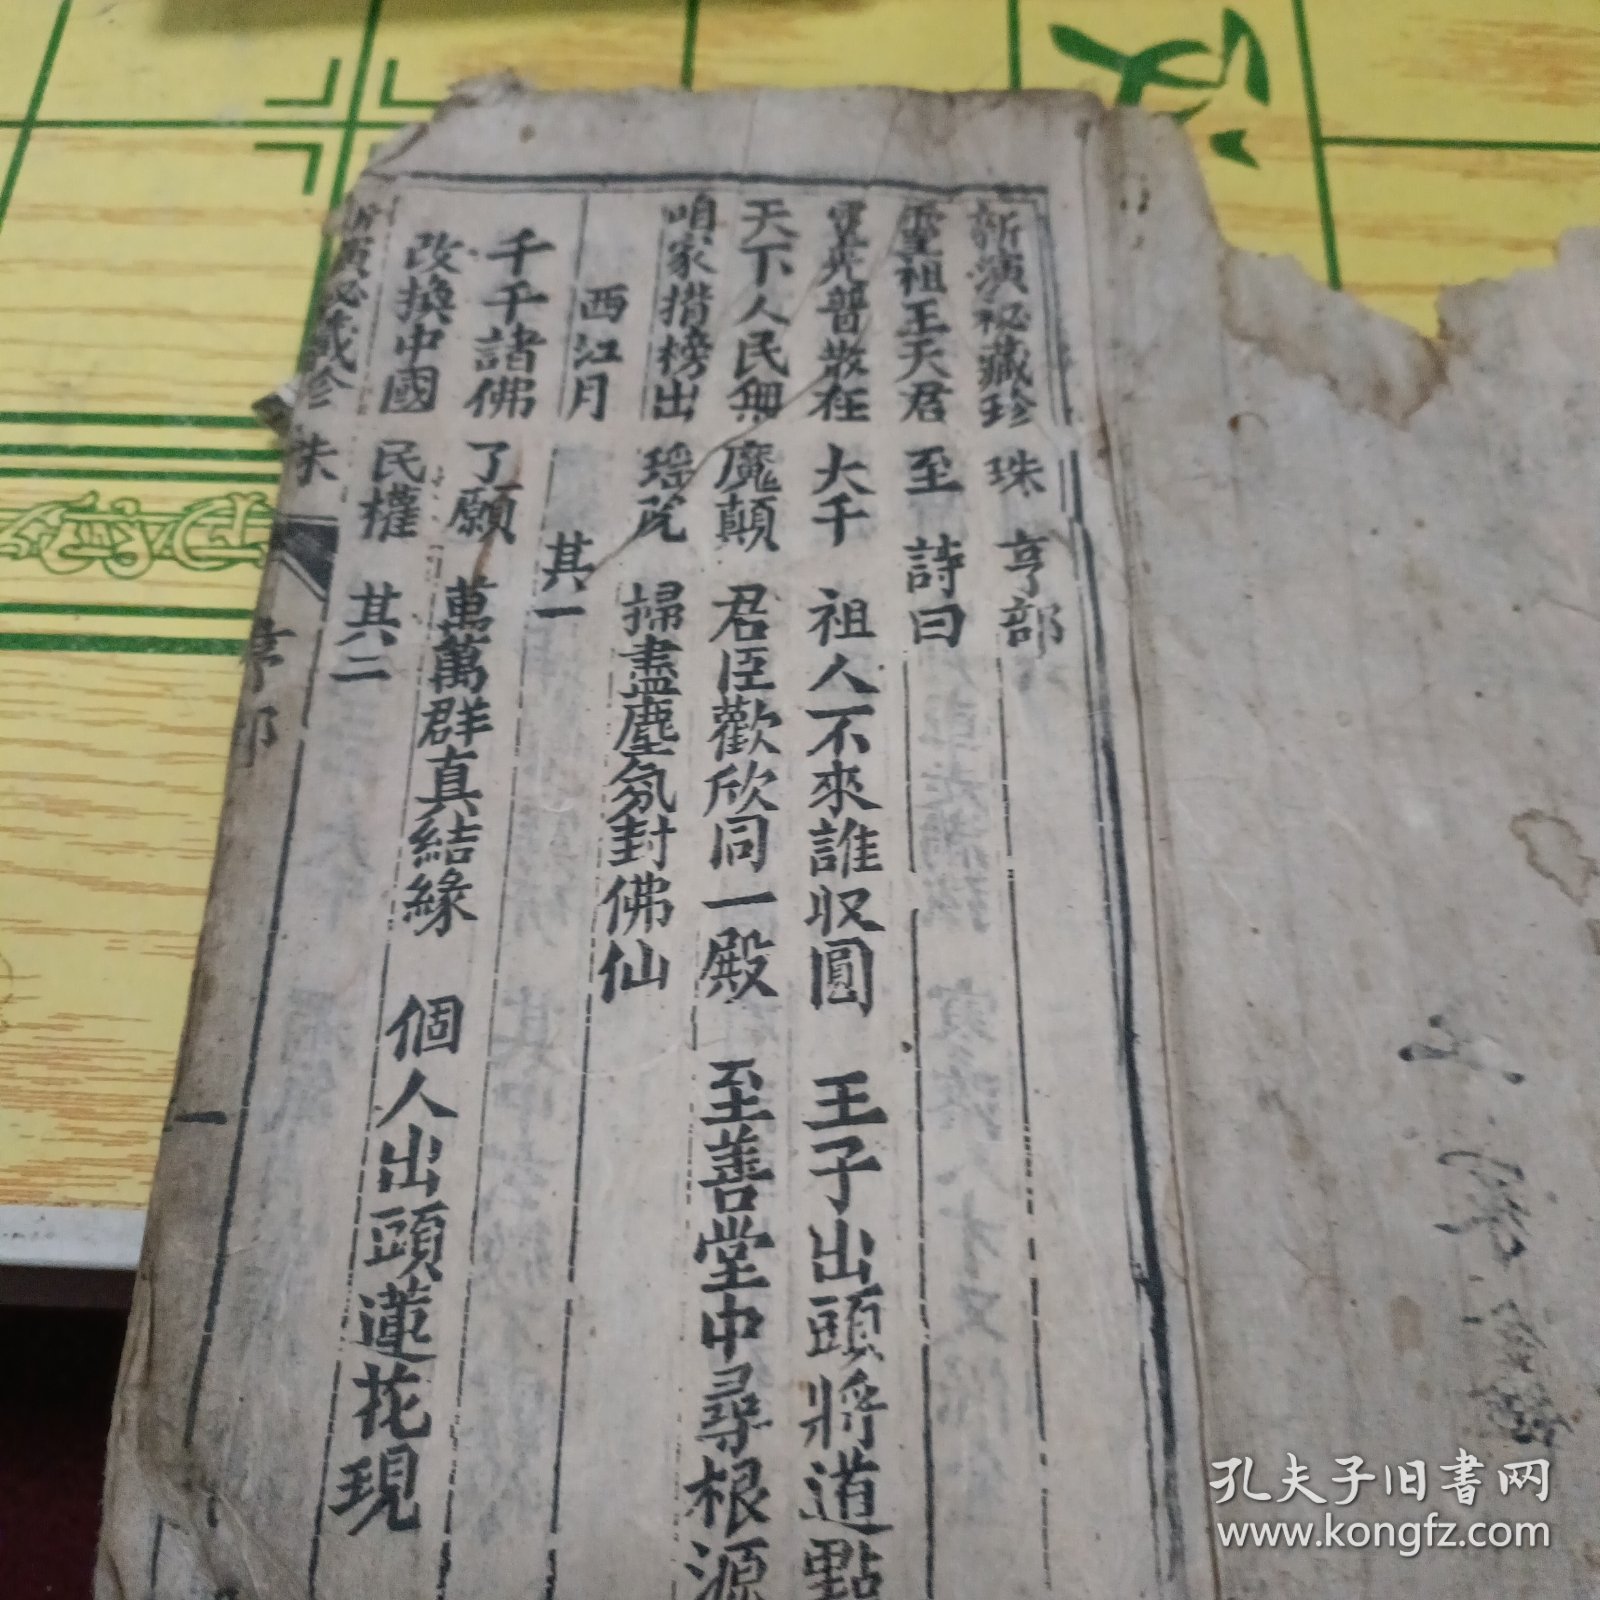 新演祕藏珍珠 亨部
靈祖王天君至 詩曰
靈光普散在大千 祖人不來誰収圓 王子出頭將道點
天下人民無魔顛 君臣歡欣同一殿 至善堂中尋根源
咱家揹榜出瑶池 掃盡塵氛封佛仙
西江月 其一
千千諸佛了願 萬萬群真結緣 個人出頭蓮花現
改換中國民權 其二
新演祕藏珍珠 亨部 一
孔夫子旧书网
www.kongfz.com